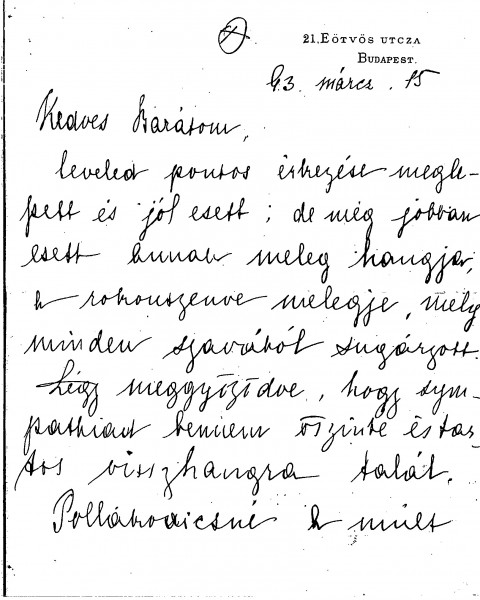 21. EÖTVÖS UTCZA
BUDAPEST.
93. márcz. 15
Kedves Barátom,
leveled pontos érkezése megle-
pett és jól esett; de még jobban
esett annak meleg hangja,
a rokonszenve melegje, mely
minden szavából sugárzott.
Légy meggyőződve, hogy sym-
pathiád bennem őszinte és tar-
tós visszhangra talált.
a múlt